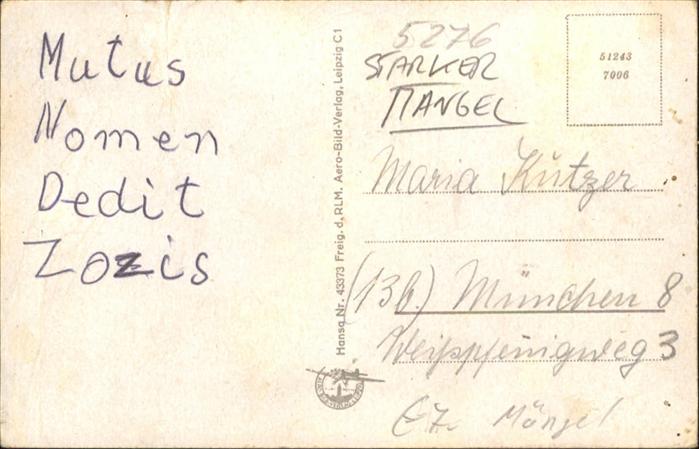 Mutus
Nomen
Dedit
Zozis
Hansa Nr. 43373 Freig. d. RLM. Aero-Bild-Verlag, Leipzig C1
5276
STARKER
MANGEL
51243
7006
Maria Kutzer
(13b) München 8
Weißpfennigweg 3
Mängel